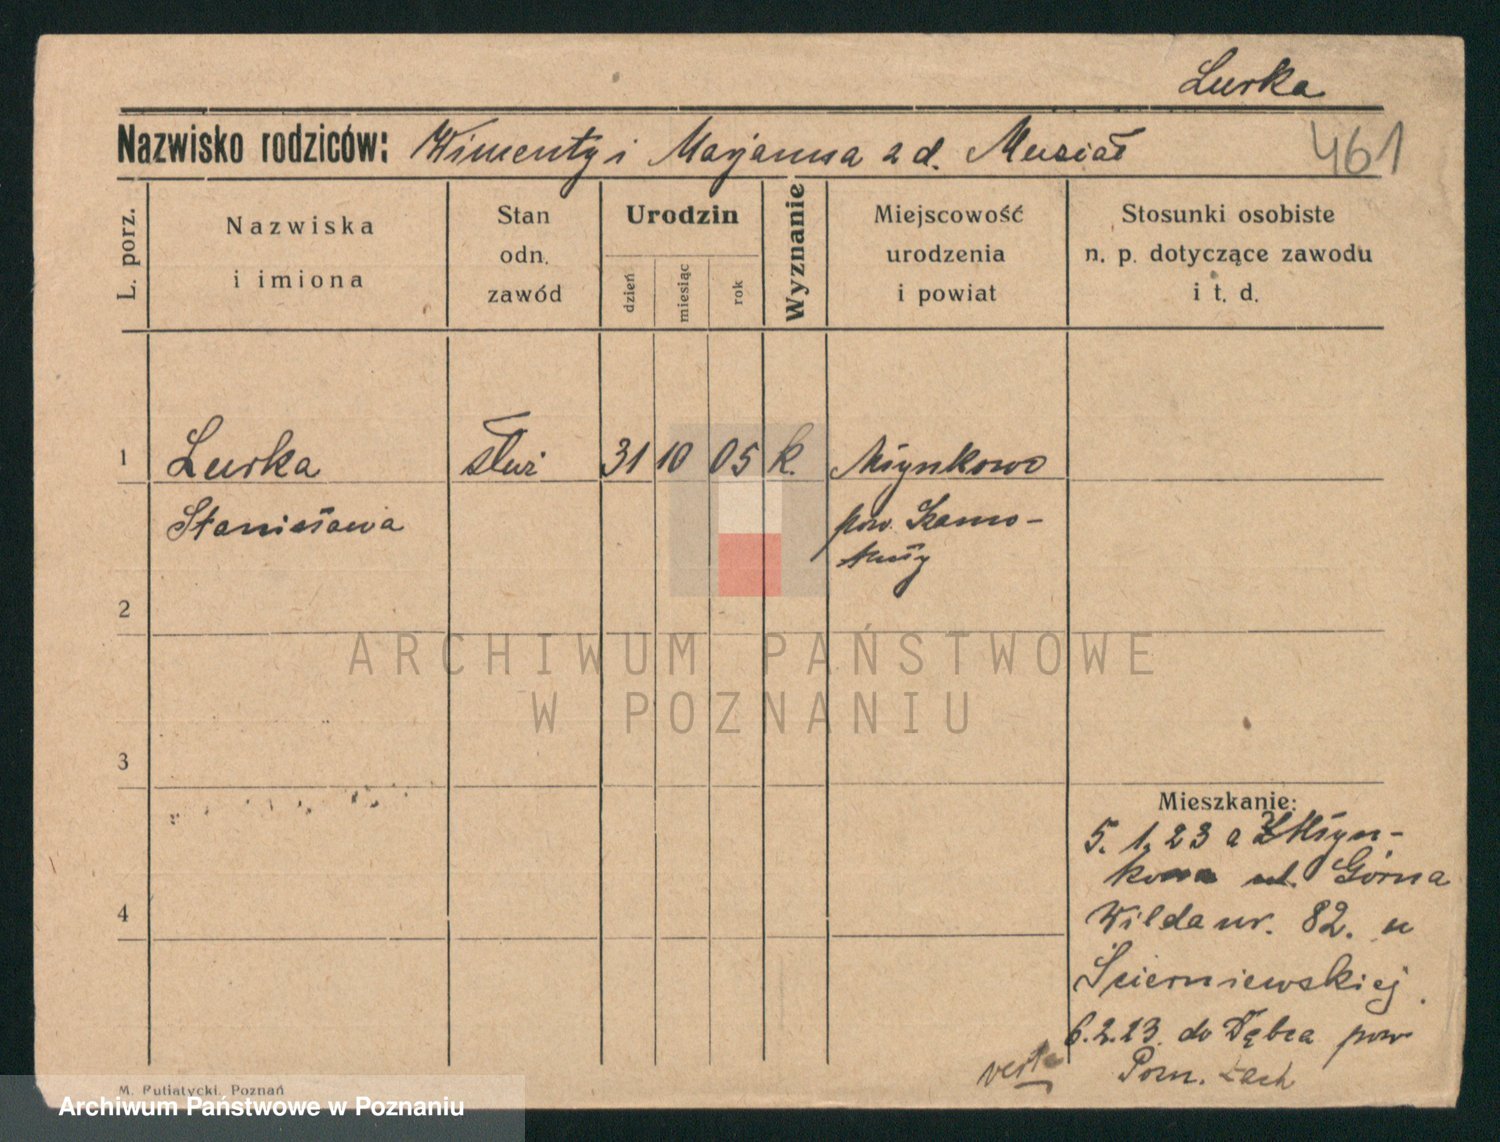 Lurka
Nazwisko rodziców: Wincenty i Marjanna z d. Musiał
461
L. porz.
Nazwiska
i imiona
Stan
odn.
zawód
Urodzin
dzień
miesiąc
rok
Wyznanie
Miejscowość
urodzenia
i powiat
Stosunki osobiste
n. p. dotyczące zawodu
i t. d.
1 Lurka służ 31 10 05 k. Młynkowo
Stanisława pow. Szamo-
tuły
2
3
4
Mieszkanie:
5. 1. 23 z Młyn-
kowa ul. Górna
Wilda nr. 82. u
Ścierniewskiej
6.2.23. do Dębca pow
Pozn.
verte
M. Putiatycki, Poznań
ARCHIWUM PAŃSTWOWE
W POZNANIU
Archiwum Państwowe w Poznaniu